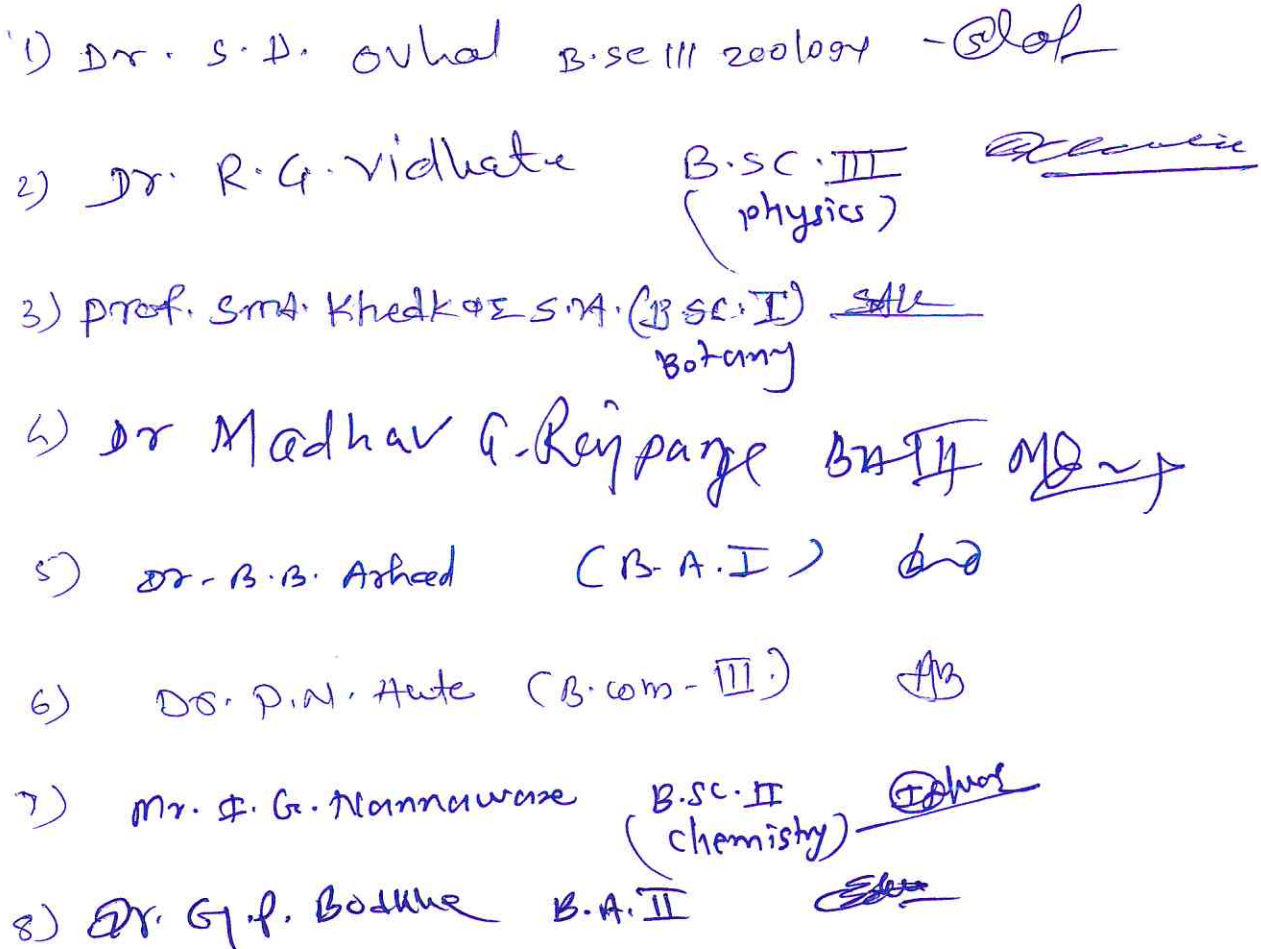 1) Dr. S. D. Ovhal B.sc III zoology -
2) Dr. R. G. Vidhate B.SC. III
(physics)
3) prof. Smt. Khedkar S.A. (B.SC. I)
Botany
4) Dr Madhav G. Rajpange BA III
5) Dr. B.B. Arhad (B.A.I)
6) Dr. P.N. Aute (B.com-III.)
7) Mr. I. G. Nannaware B.SC. II
(chemistry)
8) Dr. G.P. Bodkhe B.A. II